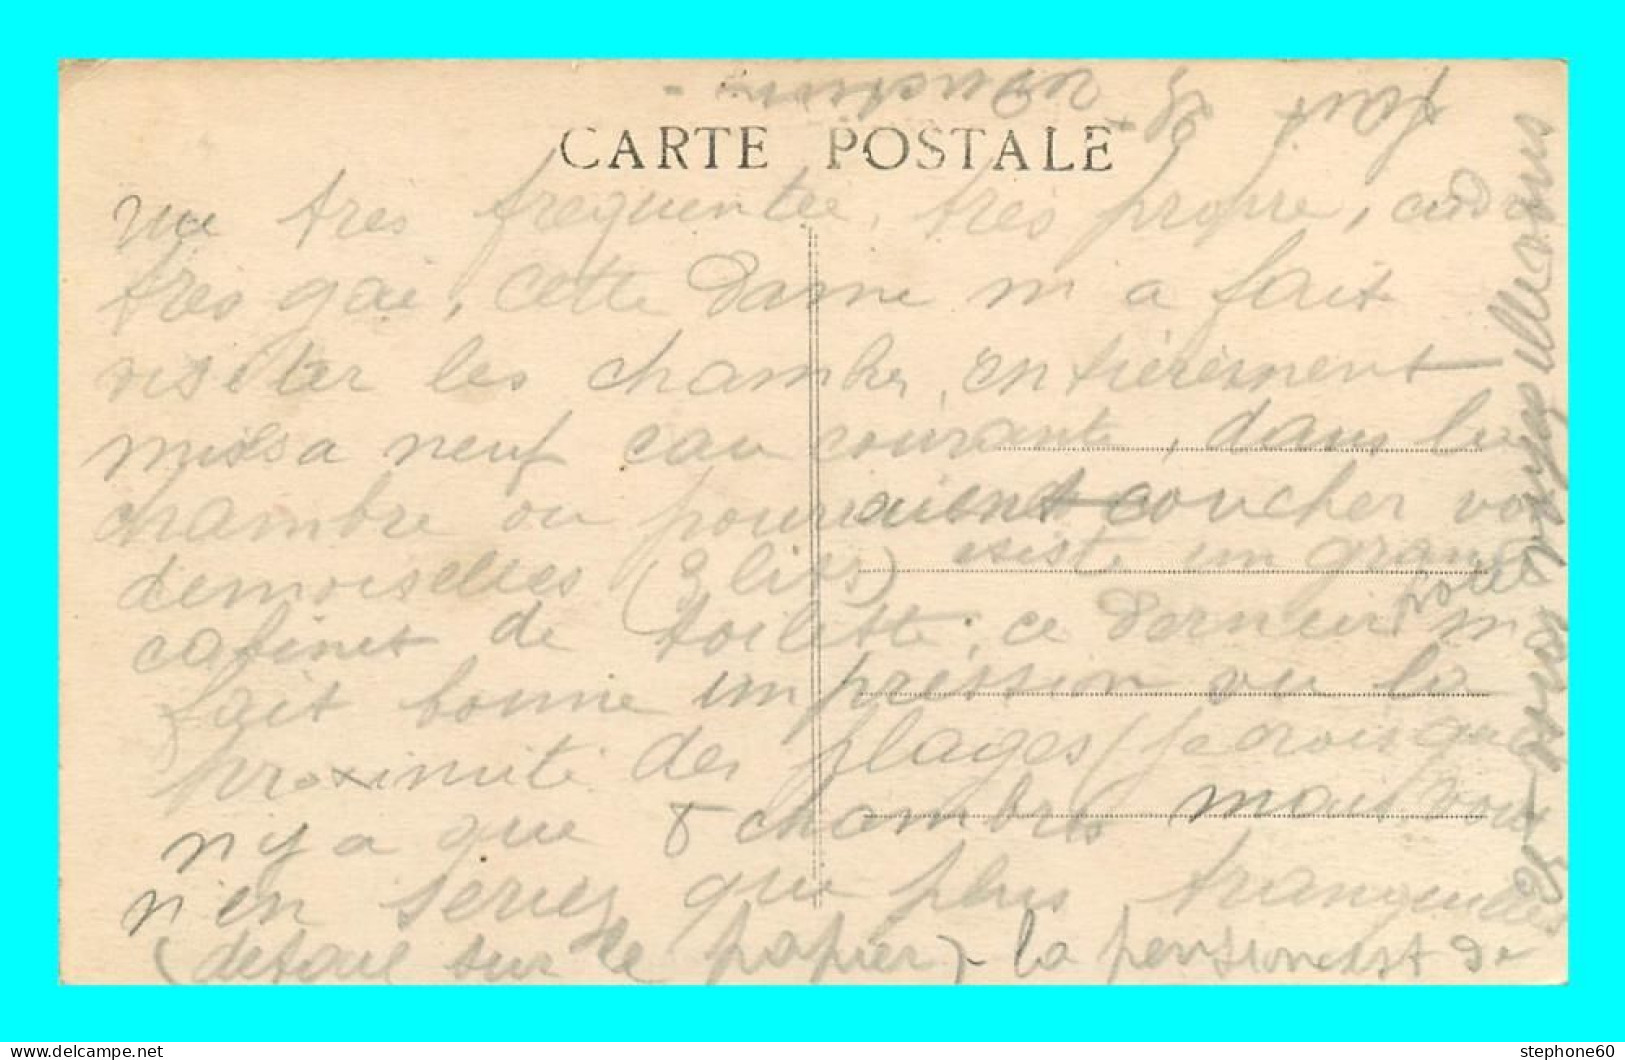 CARTE POSTALE
rue tres frequentée, très propre,
tres gai, cette Dame m'a fait
visiter les chambres, entièrement
miss a neuf eau courante, dans la
chambre ou pourraient coucher vos
demoiselles (2 lits) existe un grand
cabinet de toilette, ce dernier m
fait bonne impression vu la
proximité des plages (je crois que
n'y a que 8 chambres mais vous
n'en seriez que plus tranquilles
(détail sur le papier) - la pension est de
stephone60